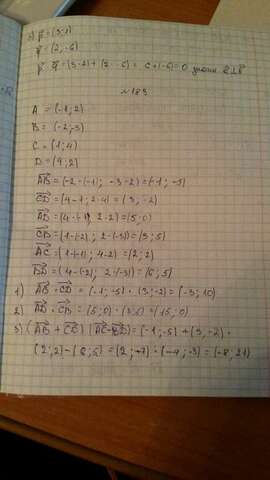 p⃗ = (3;1)
q⃗ = (2;-6)
p⃗ · q⃗ = (3·2) + (1·-6) = 6+(-6)=0
№183
A = (-1;2)
B = (-2;-3)
C = (1;4)
D = (4;2)
AB = (-2-(-1); -3-2) = (-1; -5)
CD = (4-1; 2-4) = (3; -2)
AD = (4-(-1); 2-2) = (5;0)
CB = (1-(-2); 2-(-3)) = (3;5)
AC = (1-(-1); 4-2) = (2;2)
BD = (4-(-2); 2-(-3)) = (6;5)
1) AB · CD = (-1; -5) · (3; -2) = (-3; 10)
2) AD · CB = (5;0) · (3;5) = (15;0)
3) (AB + CD) (AC-BD) = (-1; -5) + (3; -2) ·
(2;2) - (6;5) = (2; -7) · (-4; -3) = (-8; 21)